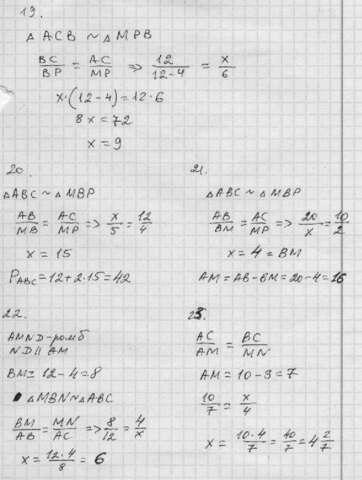 19.
△ ACB ~ △ MPB
BC/BP = AC/MP => 12/(12-4) = x/6
x·(12-4) = 12·6
8x = 72
x = 9
20.
△ABC ~ △MBP
AB/MB = AC/MP => x/5 = 12/4
x = 15
P_ABC = 12+2·15 = 42
21.
△ABC ~ △MBP
AB/BM = AC/MP => 20/x = 10/2
x = 4 = BM
AM = AB-BM = 20-4 = 16
22.
AMND - ромб
ND || AM
BM = 12-4 = 8
△MBN ~ △ABC
BM/AB = MN/AC => 8/12 = 4/x
x = 12·4/8 = 6
23.
AC/AM = BC/MN
AM = 10-3 = 7
10/7 = x/4
x = 10·4/7 = 10/7 = 4 2/7